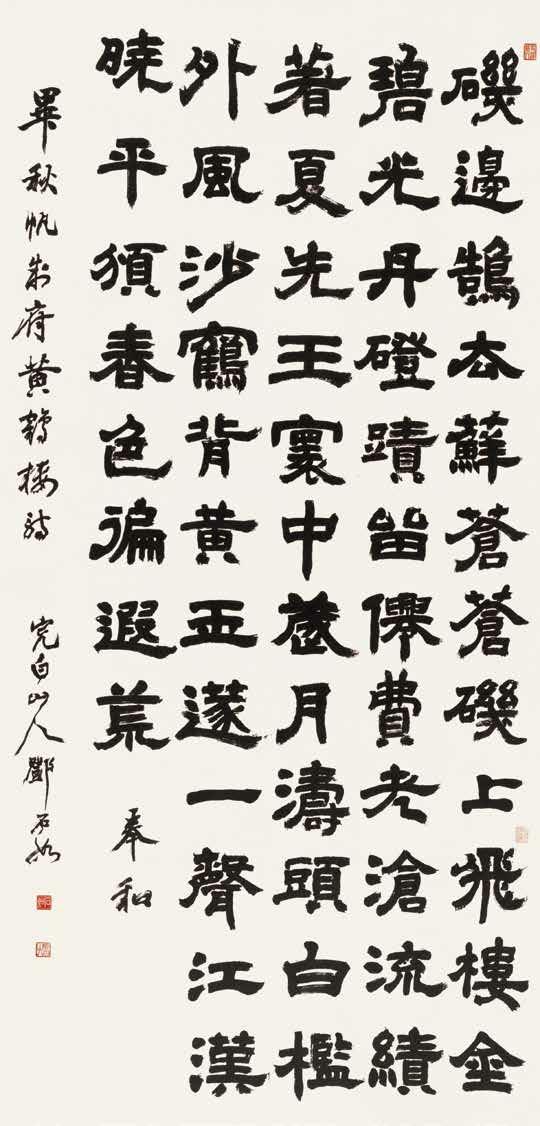 磯邊鵠去蘚蒼蒼磯上飛樓金
碧光丹磴蹟留僊費老滄流績
著夏先王寰中歲月濤頭白檻
外風沙鶴背黃玉篴一聲江漢
曉平頒春色徧遐荒 奉和
畢秋帆制府黃鶴樓詩 完白山人鄧石如